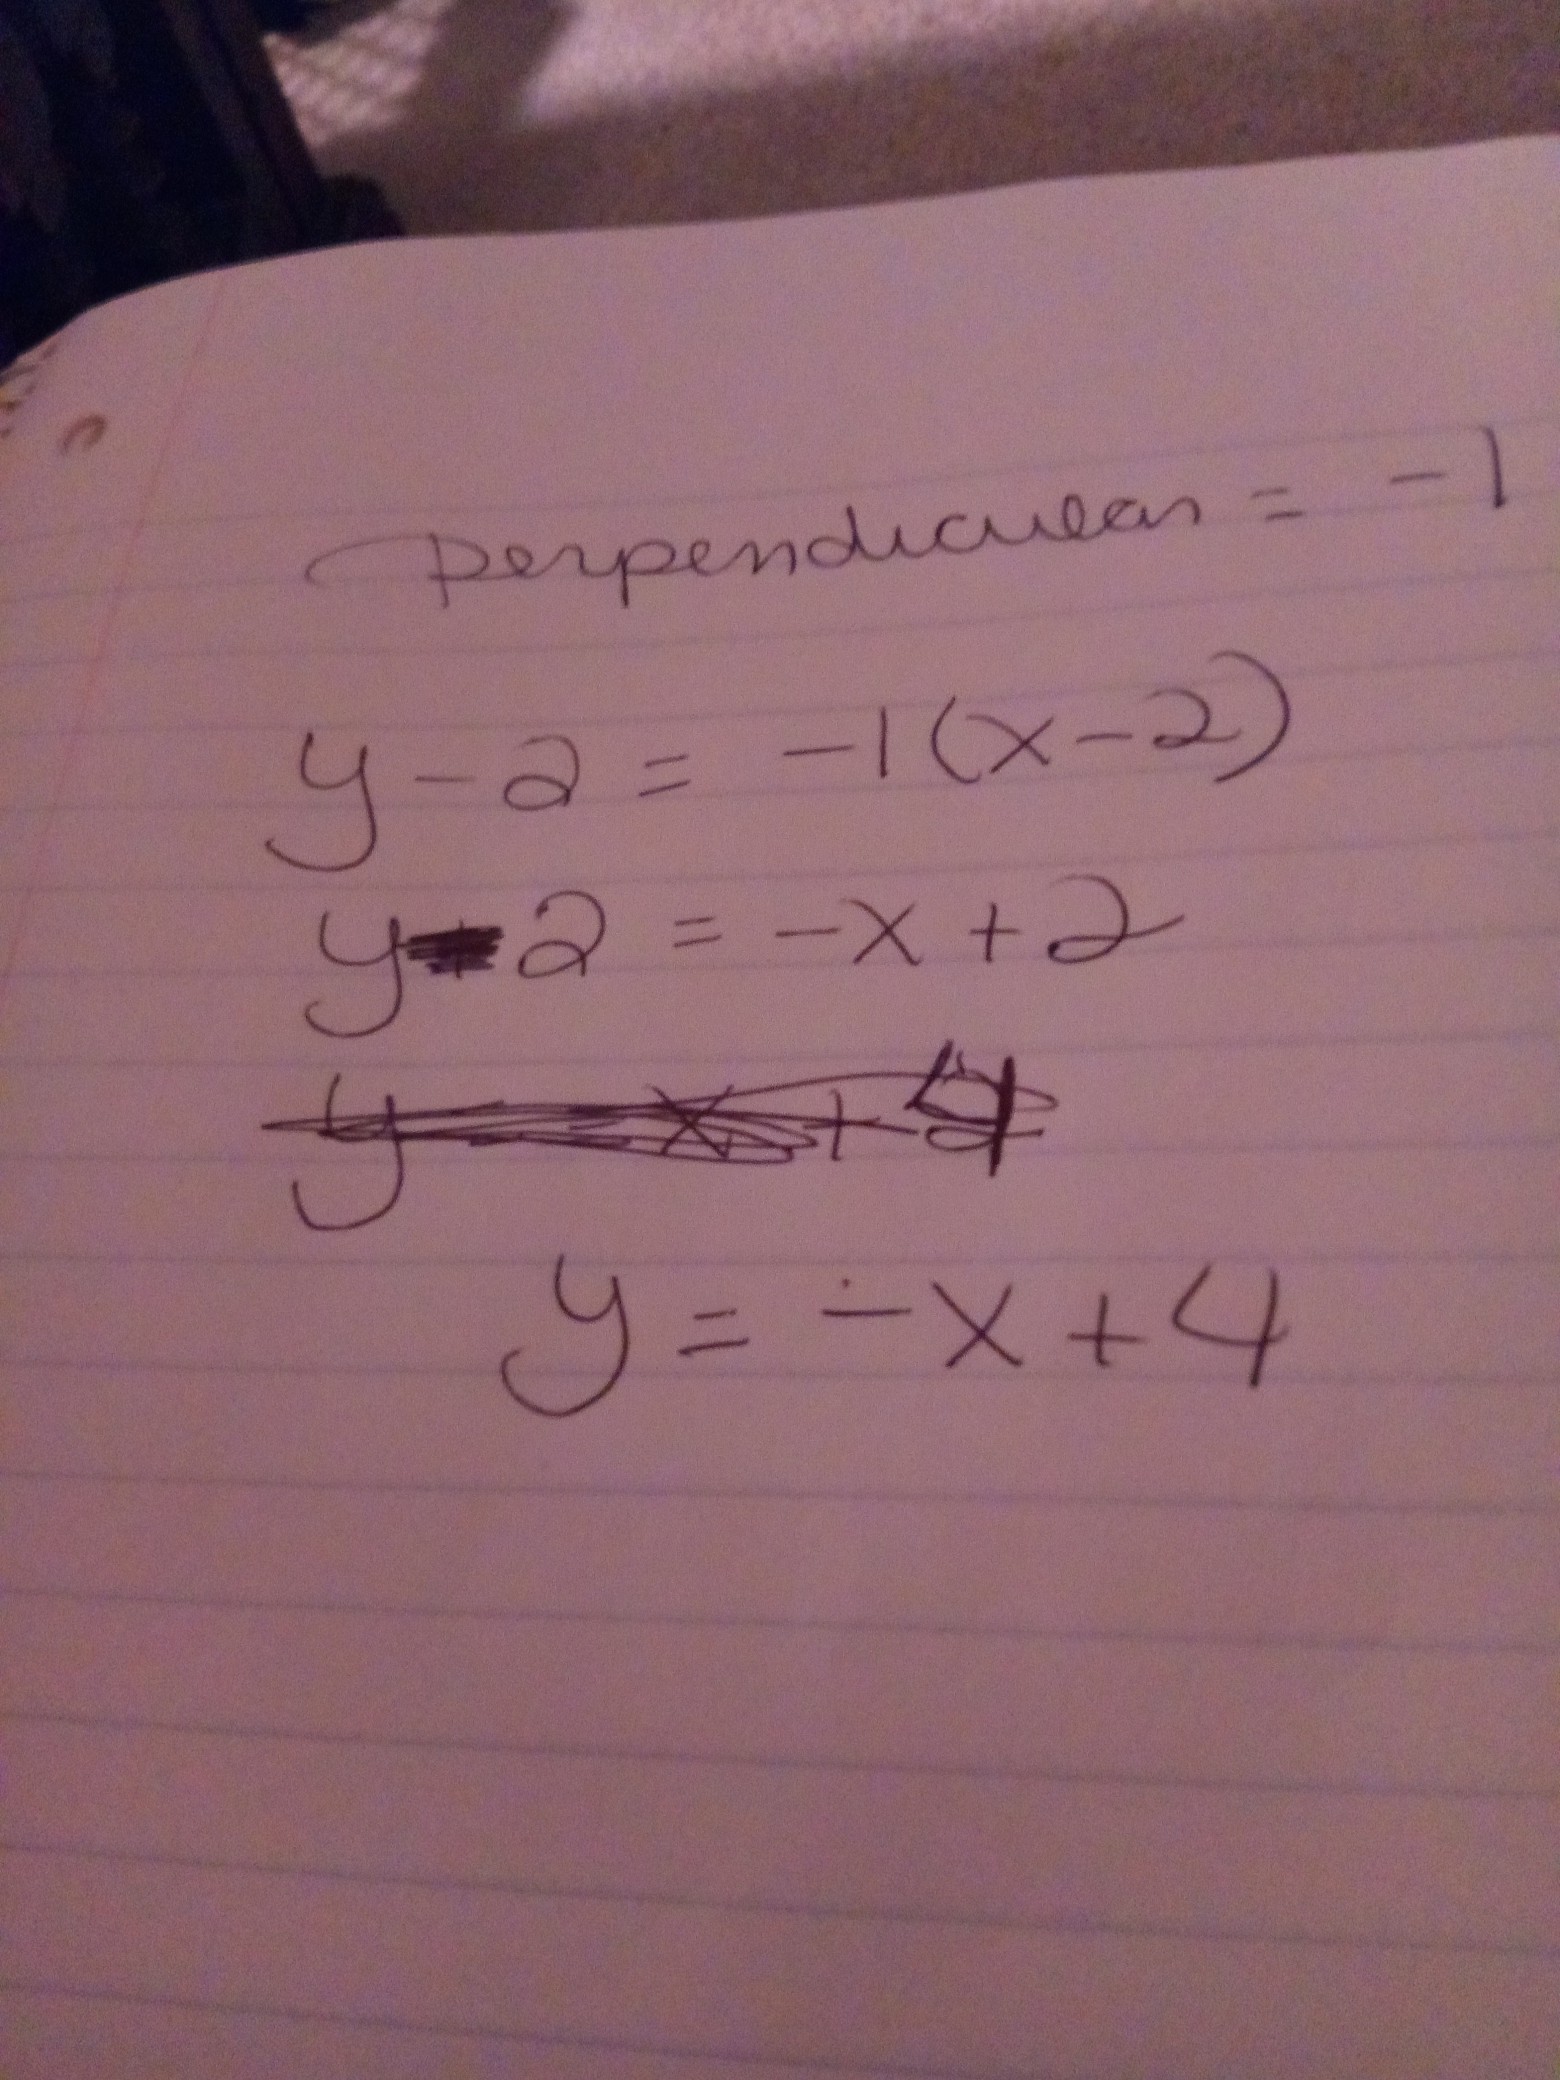 perpendicular = -1
y - 2 = -1(x - 2)
y - 2 = -x + 2
y = -x + 4